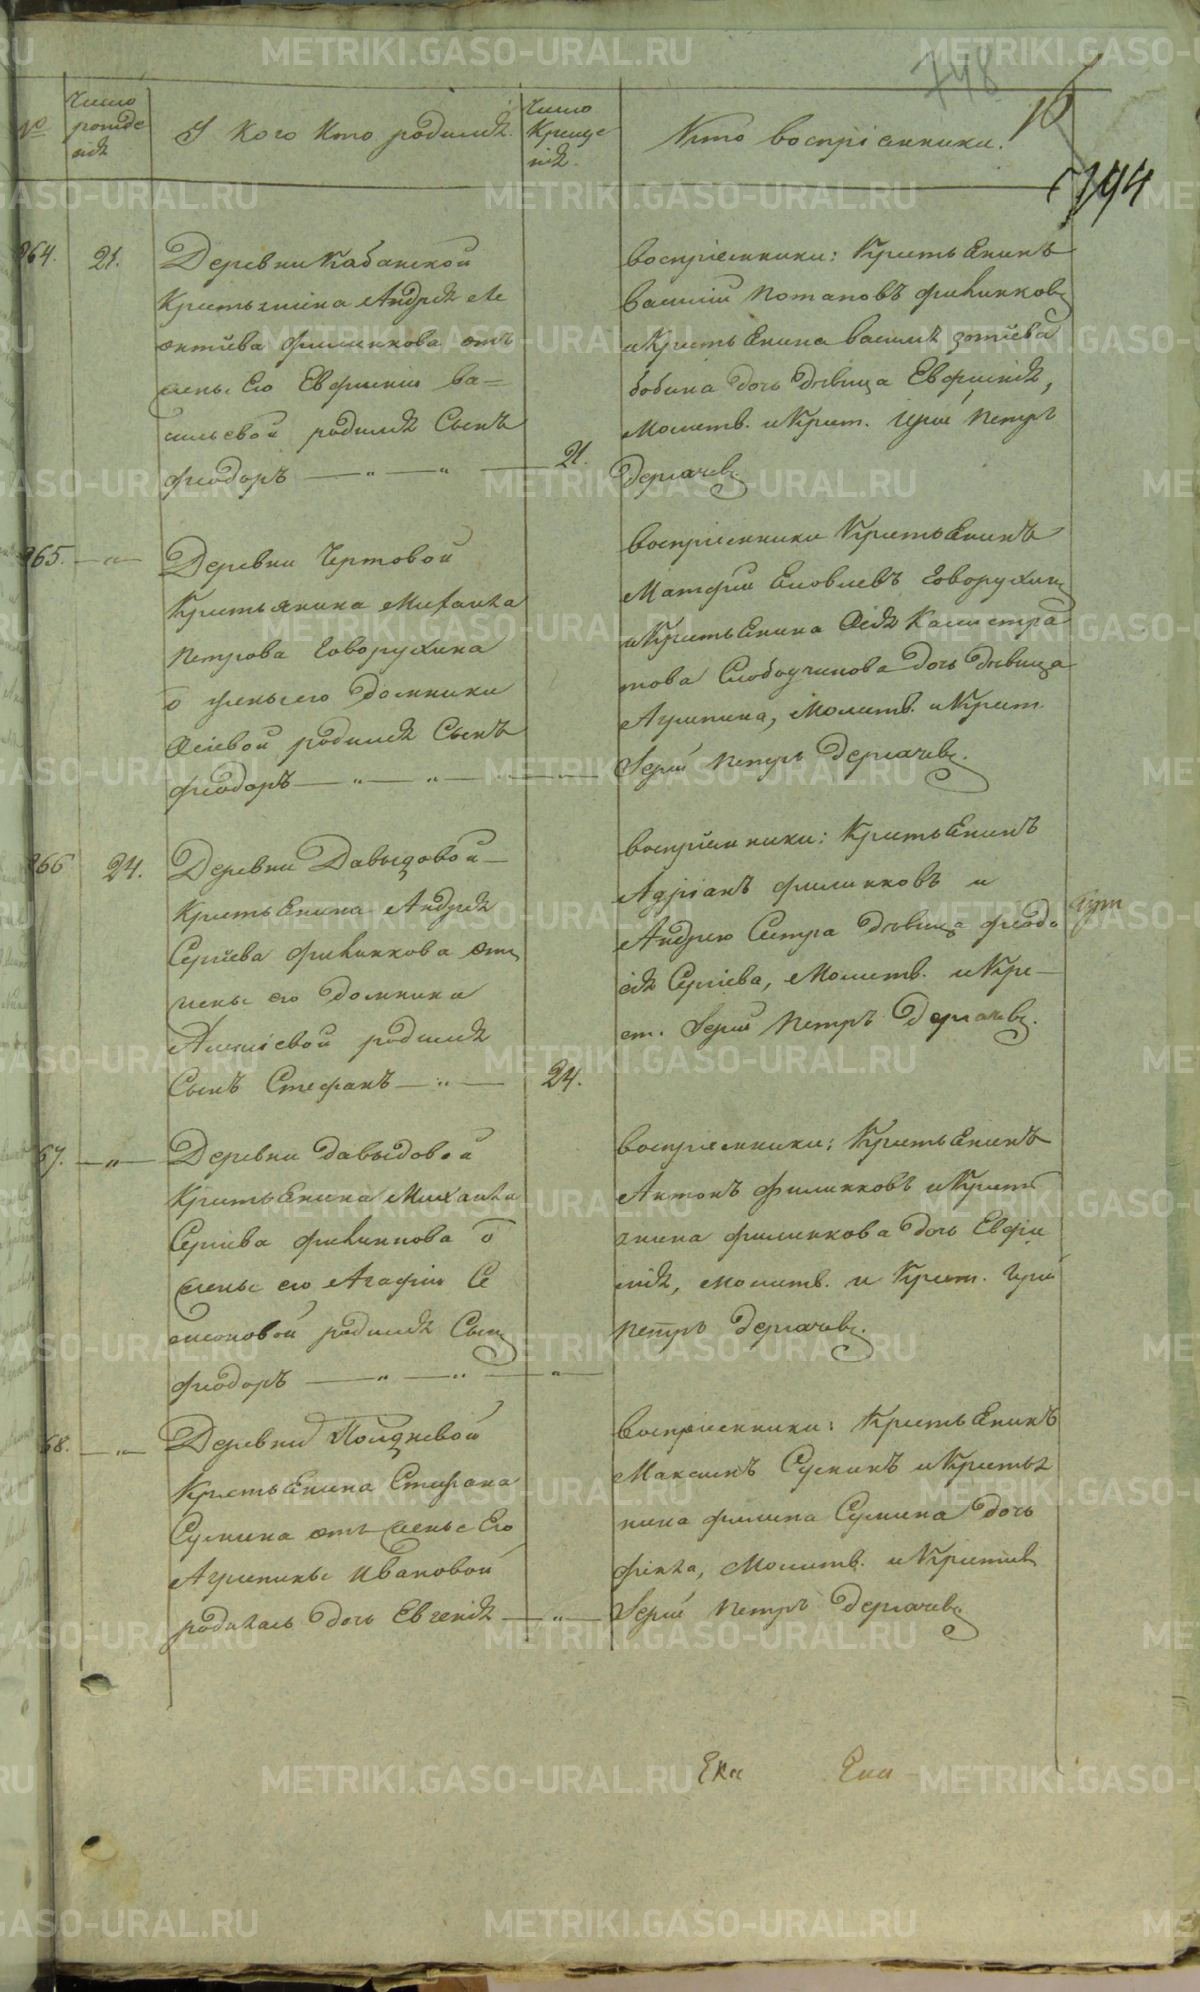 748
16
794
№
Число рожде нiя
У Кого Кто родился.
Число Креще нiя.
Кто воспрiемники.
264.
21.
Деревни Кабанской
Крестьянина Андрея Ле
онтiева Филинкова отъ
жены Его Евфимiи Ва=
сильевой родился Сынъ
Феодоръ — „ — „ —
21.
воспрiемники: КрестьЕнинъ
Василiй Потаповъ Филинковъ
и КрестьЕнина Василiя Зотiева
бобина дочь дѣвица Евфимiя,
Молитв. и Крест. Iерей Петръ
Дергачевъ.
265. — „ —
Деревни Чертовой
Крестьянина Михаила
Петрова Говорухина
о жены его Домники
Осiевой родился Сынъ
Феодоръ — „ — „ —
воспрiемники КрестьЕнинъ
Матфей Яковлевъ Говорухинъ
и КрестьЕнина Осiя Калистра
това Слободчикова дочь дѣвица
Агрипина, Молитв. и Крест.
Iерей Петръ Дергачевъ.
266
24.
Деревни Давыдовой —
КрестьЕнина Андрея
Сергiева Филинкова отъ
жены его Домники
Алексiевой родился
Сынъ Стефанъ — „ —
24.
воспрiемники: КрестьЕнинъ
Адрiанъ Филинковъ и
Андрею Сестра дѣвица Феодо
сiя Сергiева, Молитв. и Кре—
ст. Iерей Петръ Дергачевъ.
67. — „ —
Деревни Давыдовой
КрестьЕнина Михаила
Сергiева Филиппова о
жены его Агафiи Се
меоновой родился Сынъ
Феодоръ — „ — „ — „ —
воспрiемники: КрестьЕнинъ
Антонъ Филинковъ и Кресть
янина Филинкова дочь Евфи
мiя, молитв. и Крест. Iерей
Петръ Дергачевъ.
68. — „ —
Деревни Полдневой
КрестьЕнина Стефана
Сусмина отъ жены Его
Агрипины Ивановой
родилась дочь Евгенiя — „ —
воспрiемники: КрестьЕнинъ
Максимъ Сусминъ и Крестья
нина Филипа Сусмина дочь
Фекла, Молитв. и Крестилъ
Iерей Петръ Дергачевъ
Ека Ека
METRIKI.GASO-URAL.RU